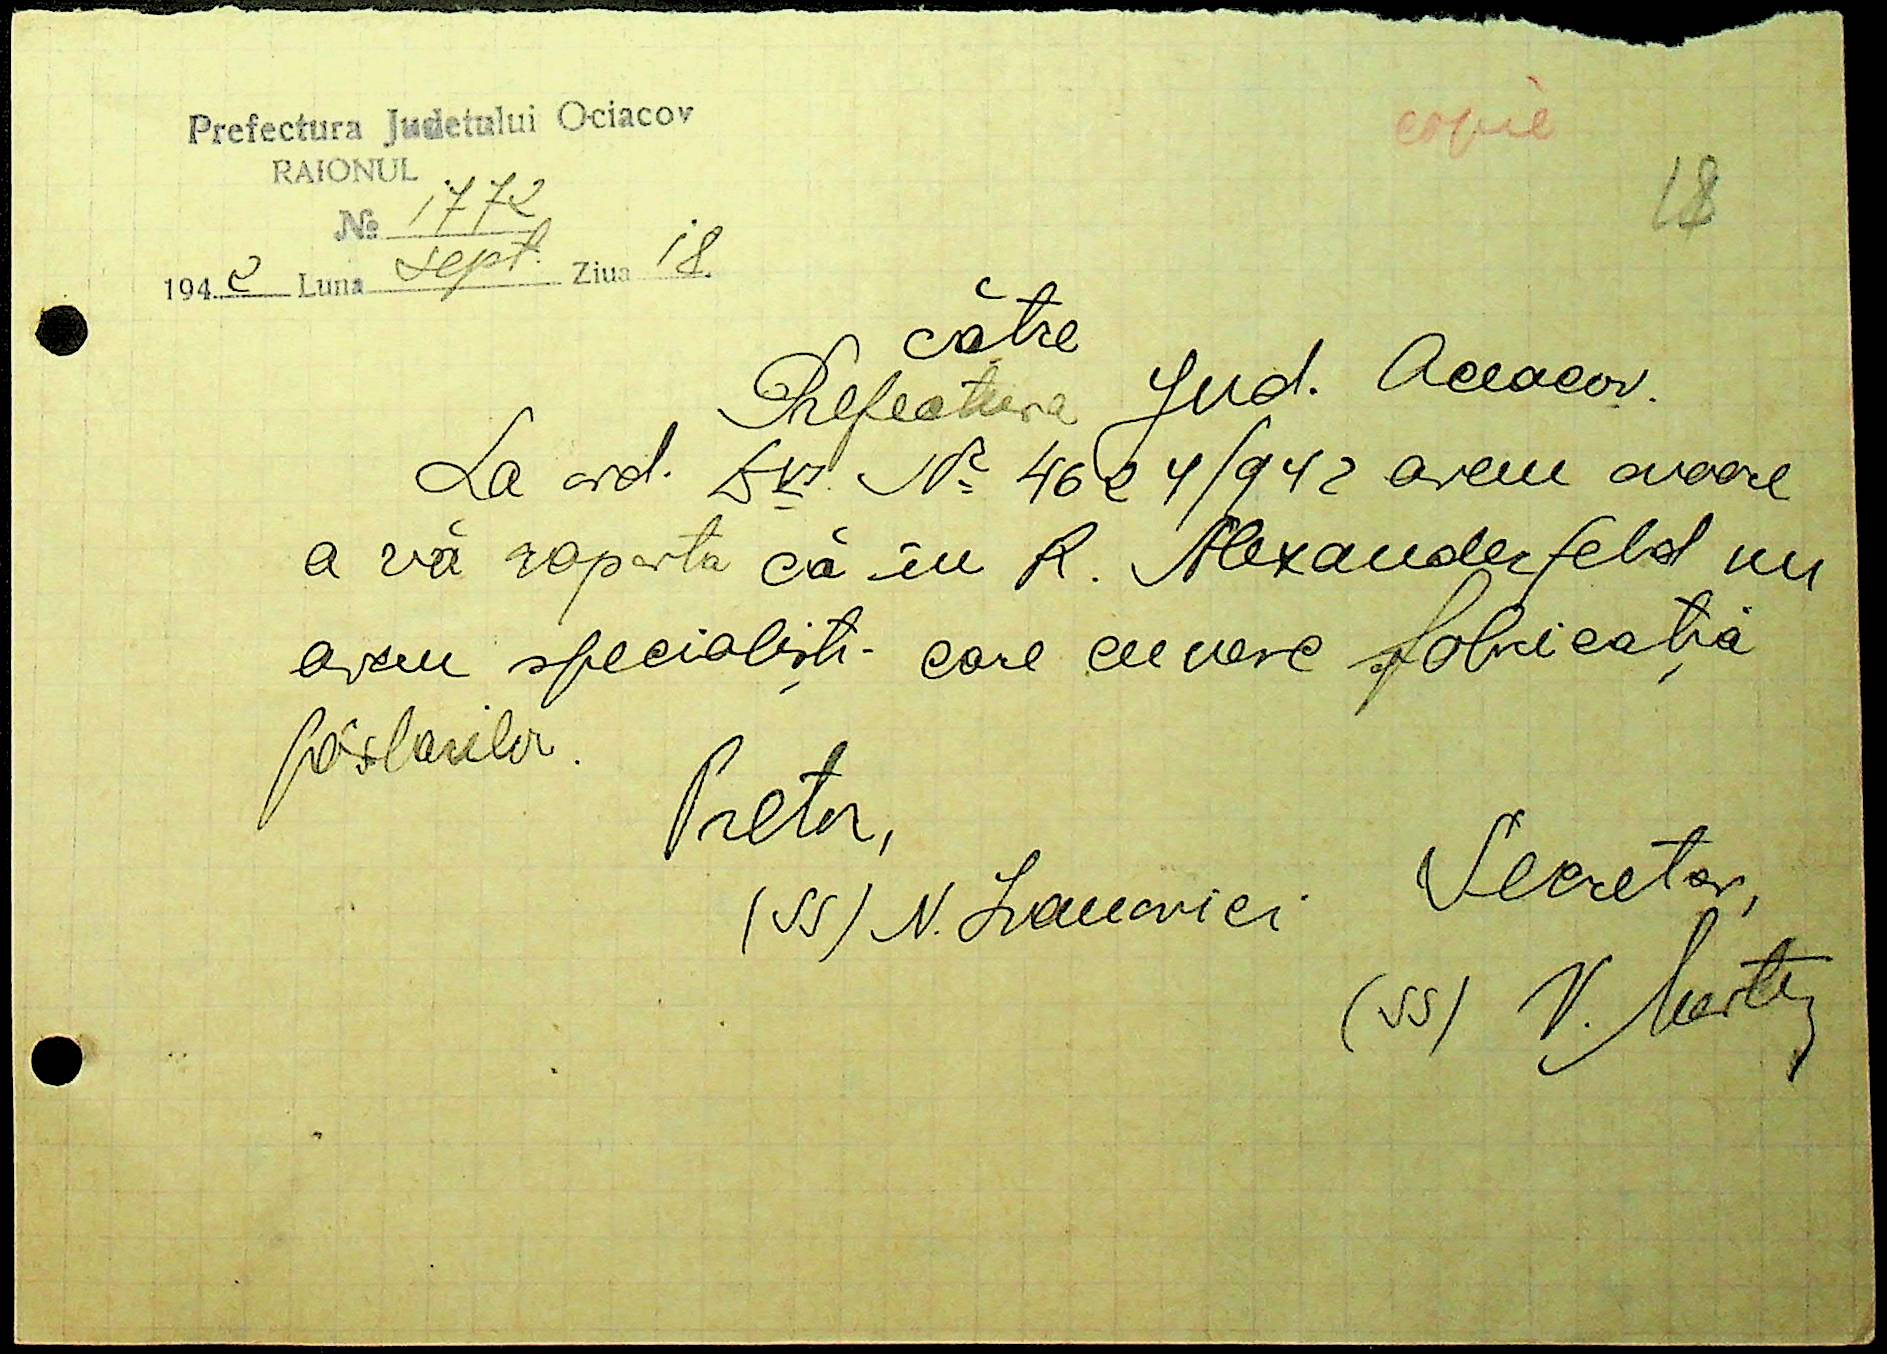 Prefectura Județului Ociacov
copie
RAIONUL
18
№ 1772
1942 Luna sept. Ziua 18
către
Prefectura Jud. Oceacov.
La ord. Dvs. Nr 4624/942 avem onoare
a vă raporta că în R. Alexanderfeld nu
avem specialiști care cunosc fabricația
pâslarilor.
Pretor,
(SS) N. Ivanovici
Secretar,
(SS) V.